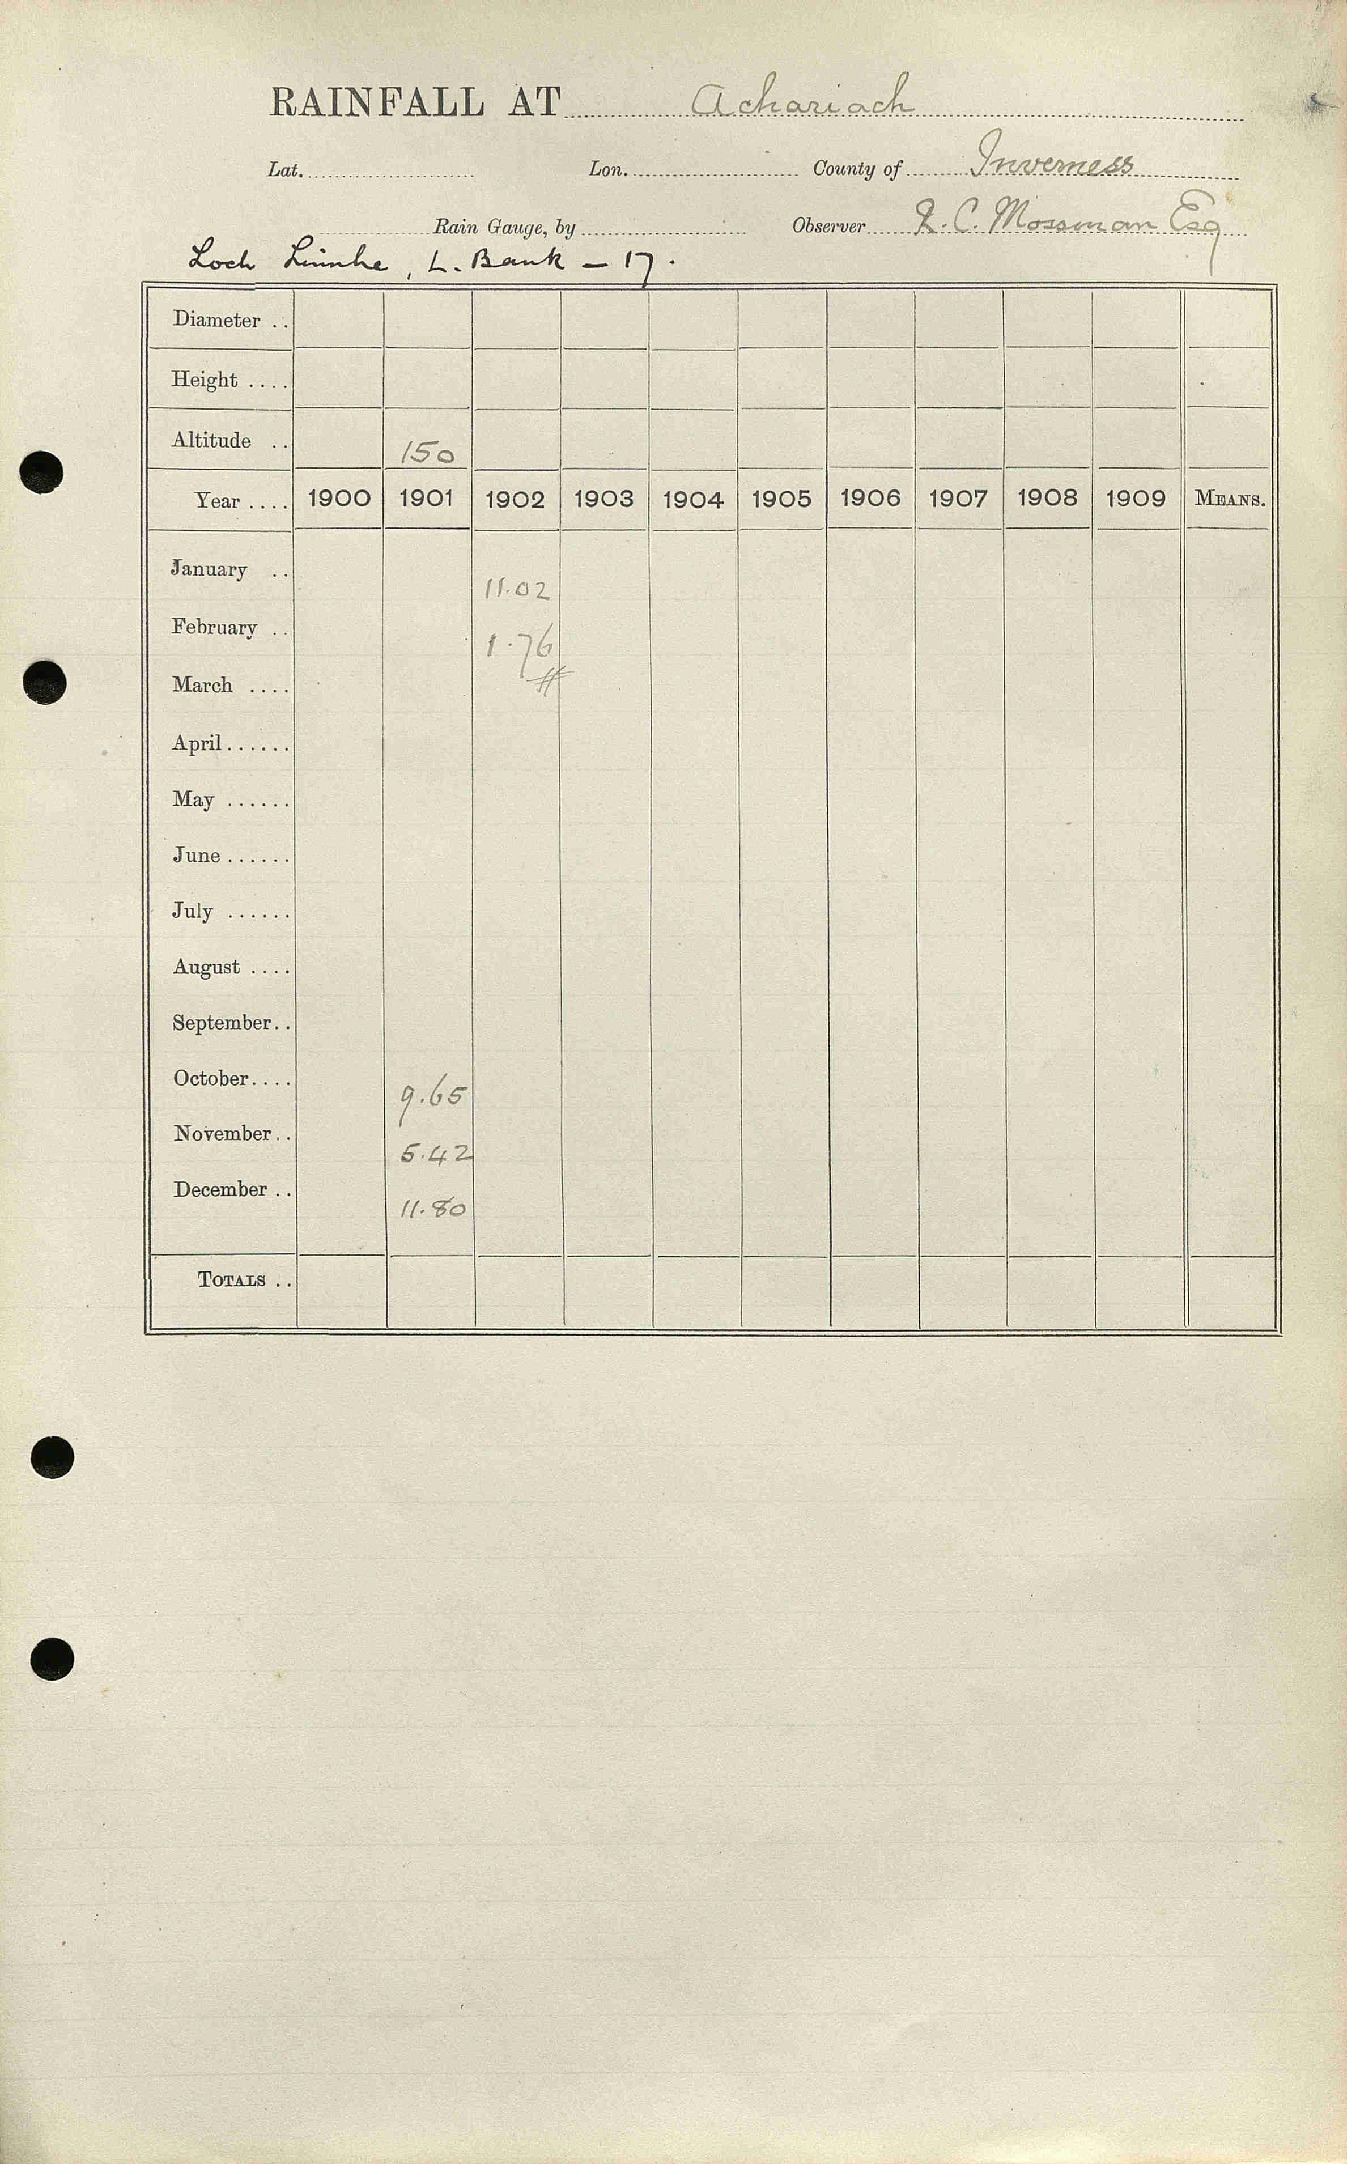 RAINFALL AT Achariach
Lat. Lon. County of Inverness
Rain Gauge, by Observer R. C. Mossman Esq
Loch Linnhe, L. Bank - 17.
Diameter ..
Height ....
Altitude .. 150
Year .... 1900 1901 1902 1903 1904 1905 1906 1907 1908 1909 MEANS.
January .. 11.02
February .. 1.76
March .... #
April ......
May ......
June ......
July ......
August ....
September..
October.... 9.65
November.. 5.42
December .. 11.80
TOTALS ..